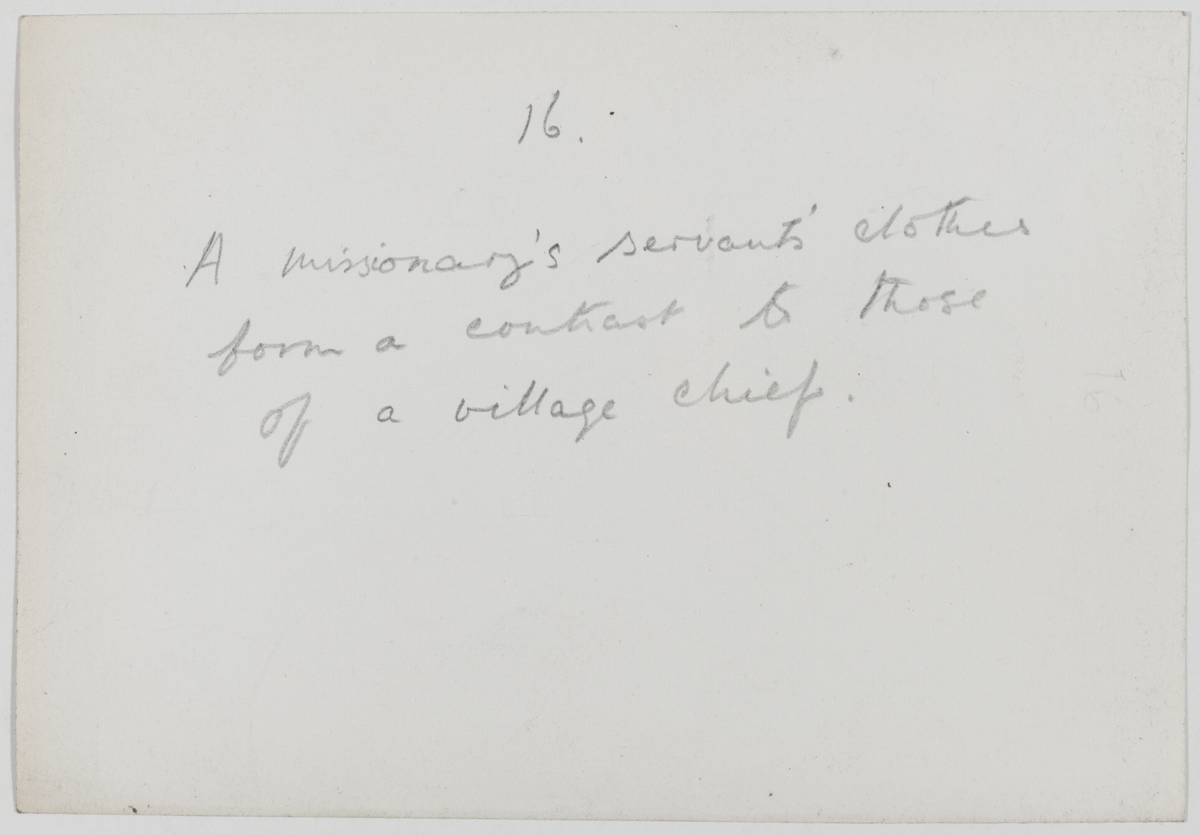 16.
A missionary's servants' clothes
form a contrast to those
of a village chief.
16